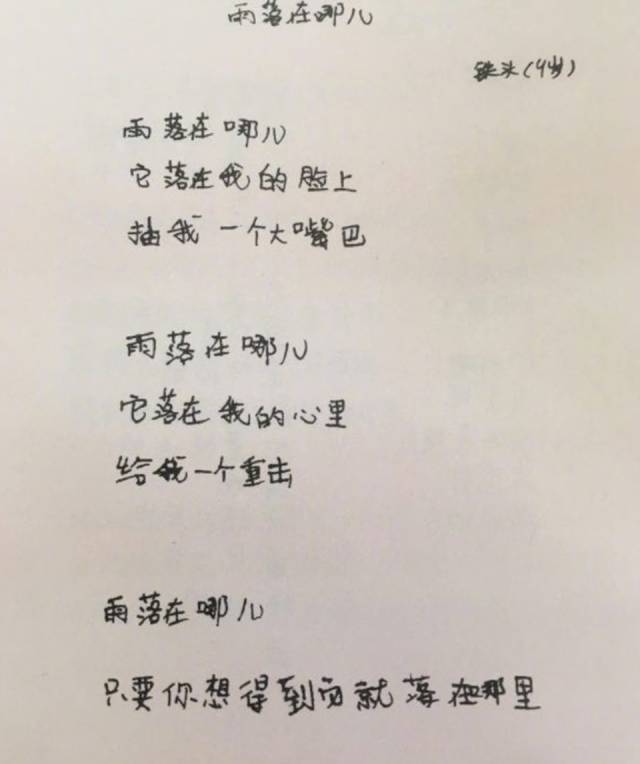 雨落在哪儿
铁头（4岁）
雨落在哪儿
它落在我的脸上
抽我一个大嘴巴
雨落在哪儿
它落在我的心里
给我一个重击
雨落在哪儿
只要你想得到雨就落在那里